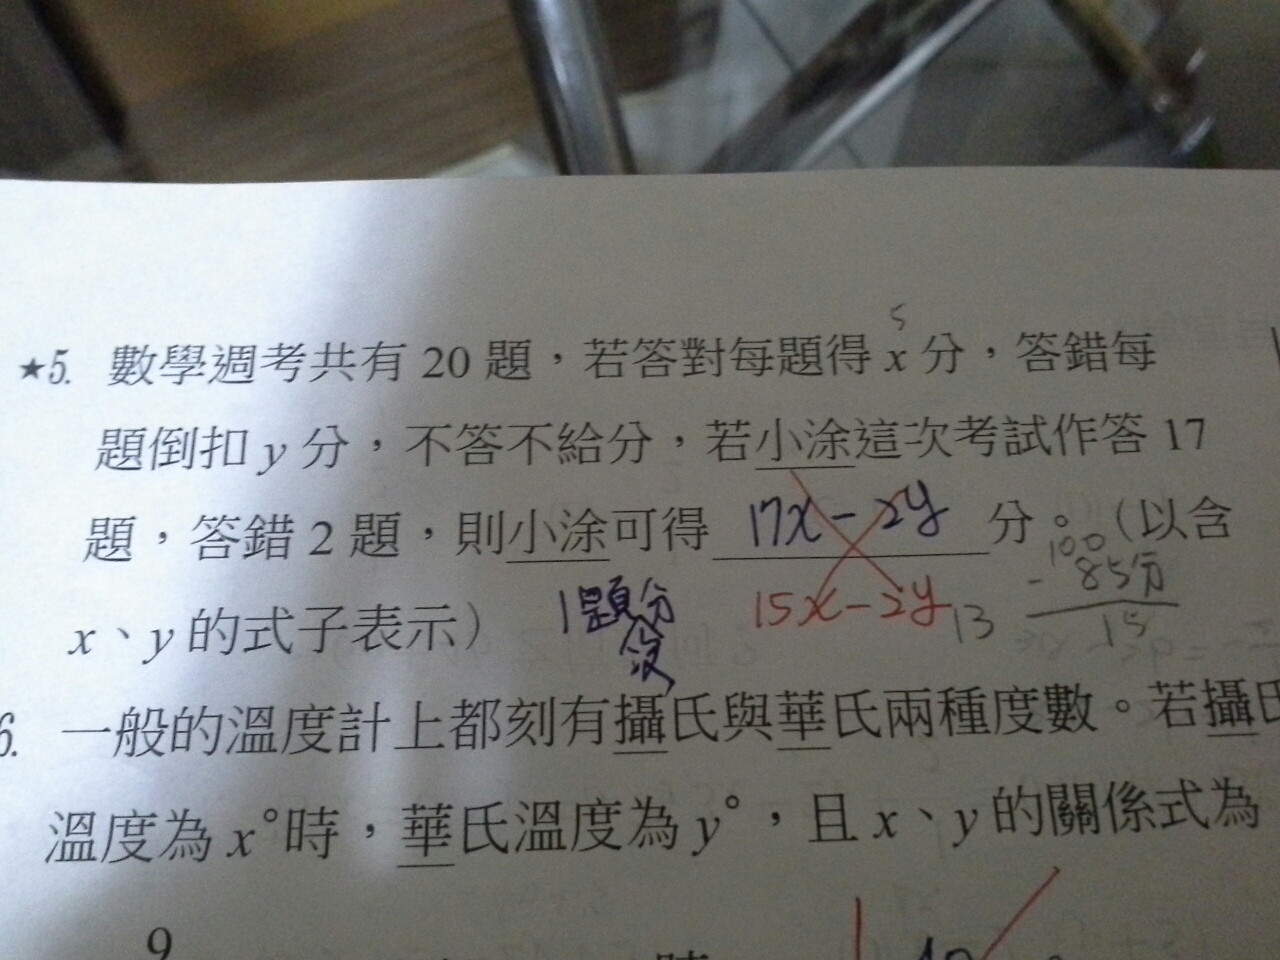 5
★5. 數學週考共有 20 題，若答對每題得 x 分，答錯每
題倒扣 y 分，不答不給分，若小涂這次考試作答 17
題，答錯 2 題，則小涂可得 17x-2y 分。（以含
100
- 85分
15
x、y 的式子表示） 1題分 15x-2y 13
6. 一般的溫度計上都刻有攝氏與華氏兩種度數。若攝氏
溫度為 x°時，華氏溫度為 y°，且 x、y 的關係式為
9